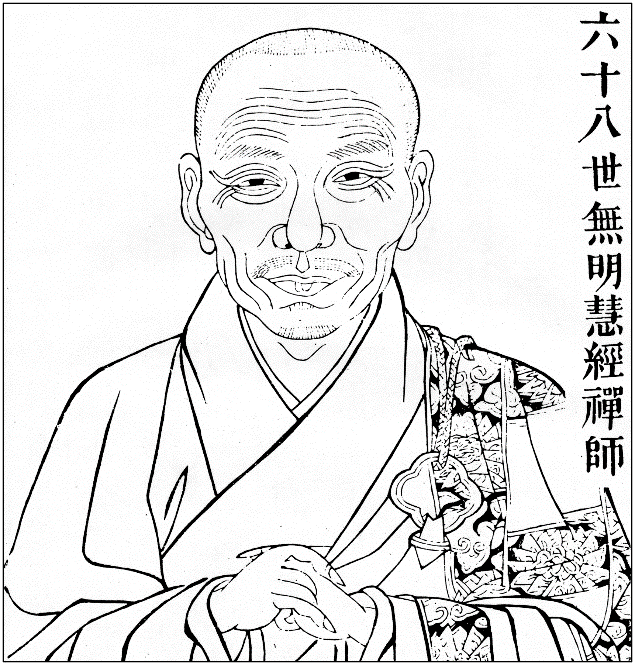 六十八世無明慧經禪師